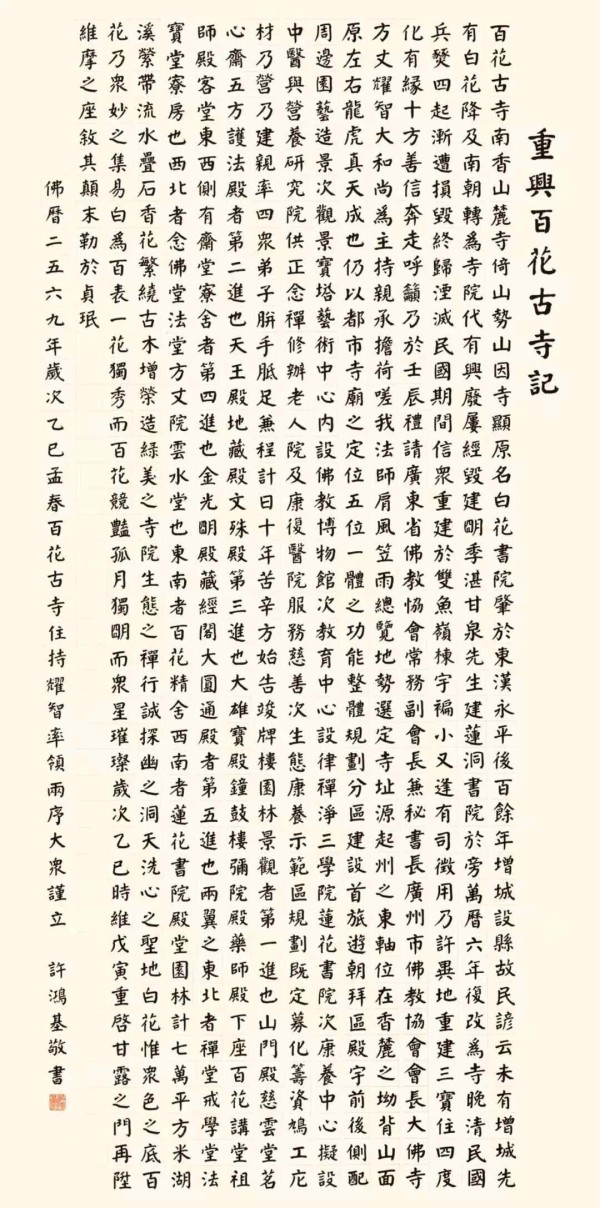 重興百花古寺記
百花古寺南香山麓寺倚山勢山因寺顯原名白花書院肇於東漢永平後百餘年增城設縣故民諺云未有增城先
有白花降及南朝轉爲寺院代有興廢屢經毀建明季湛甘泉先生建蓮洞書院於旁萬曆六年復改爲寺晚清民國
兵燹四起漸遭損毀終歸湮滅民國期間信衆重建於雙魚嶺棟宇褊小又逢有司徵用乃許異地重建三寶住四度
化有緣十方善信奔走呼籲乃於壬辰禮請廣東省佛教協會常務副會長兼秘書長廣州市佛教協會會長大佛寺
方丈耀智大和尚爲主持親承擔荷嗟我法師肩風笠雨總覽地勢選定寺址源起州之東軸位在香麓之坳背山面
原左右龍虎真天成也仍以都市寺廟之定位五位一體之功能整體規劃分區建設首旅遊朝拜區殿宇前後側配
周邊園藝造景次觀景寶塔藝術中心内設佛教博物館次教育中心設律禪淨三學院蓮花書院次康養中心擬設
中醫與營養研究院供正念禪修辦老人院及康復醫院服務慈善次生態康養示範區規劃既定募化籌資鳩工庀
材乃營乃建親率四衆弟子胼手胝足兼程計日十年苦辛方始告竣牌樓園林景觀者第一進也山門殿慈雲堂茗
心齋五方護法殿者第二進也天王殿地藏殿文殊殿第三進也大雄寶殿鐘鼓樓彌院殿藥師殿下座百花講堂祖
師殿客堂東西側有齋堂寮舍者第四進也金光明殿藏經閣大圓通殿者第五進也兩翼之東北者禪堂戒學堂法
寶堂寮房也西北者念佛堂法堂方丈院雲水堂也東南者百花精舍西南者蓮花書院殿堂園林計七萬平方米湖
溪縈帶流水疊石香花繁繞古木增榮造緑美之寺院生態之禪行誠探幽之洞天洗心之聖地白花惟衆色之底百
花乃衆妙之集易白爲百表一花獨秀而百花競豔孤月獨明而衆星璀璨歲次乙巳時維戊寅重啓甘露之門再陞
維摩之座敘其顛末勒於貞珉
佛曆二五六九年歲次乙巳孟春百花古寺住持耀智率領兩序大衆謹立 許鴻基敬書